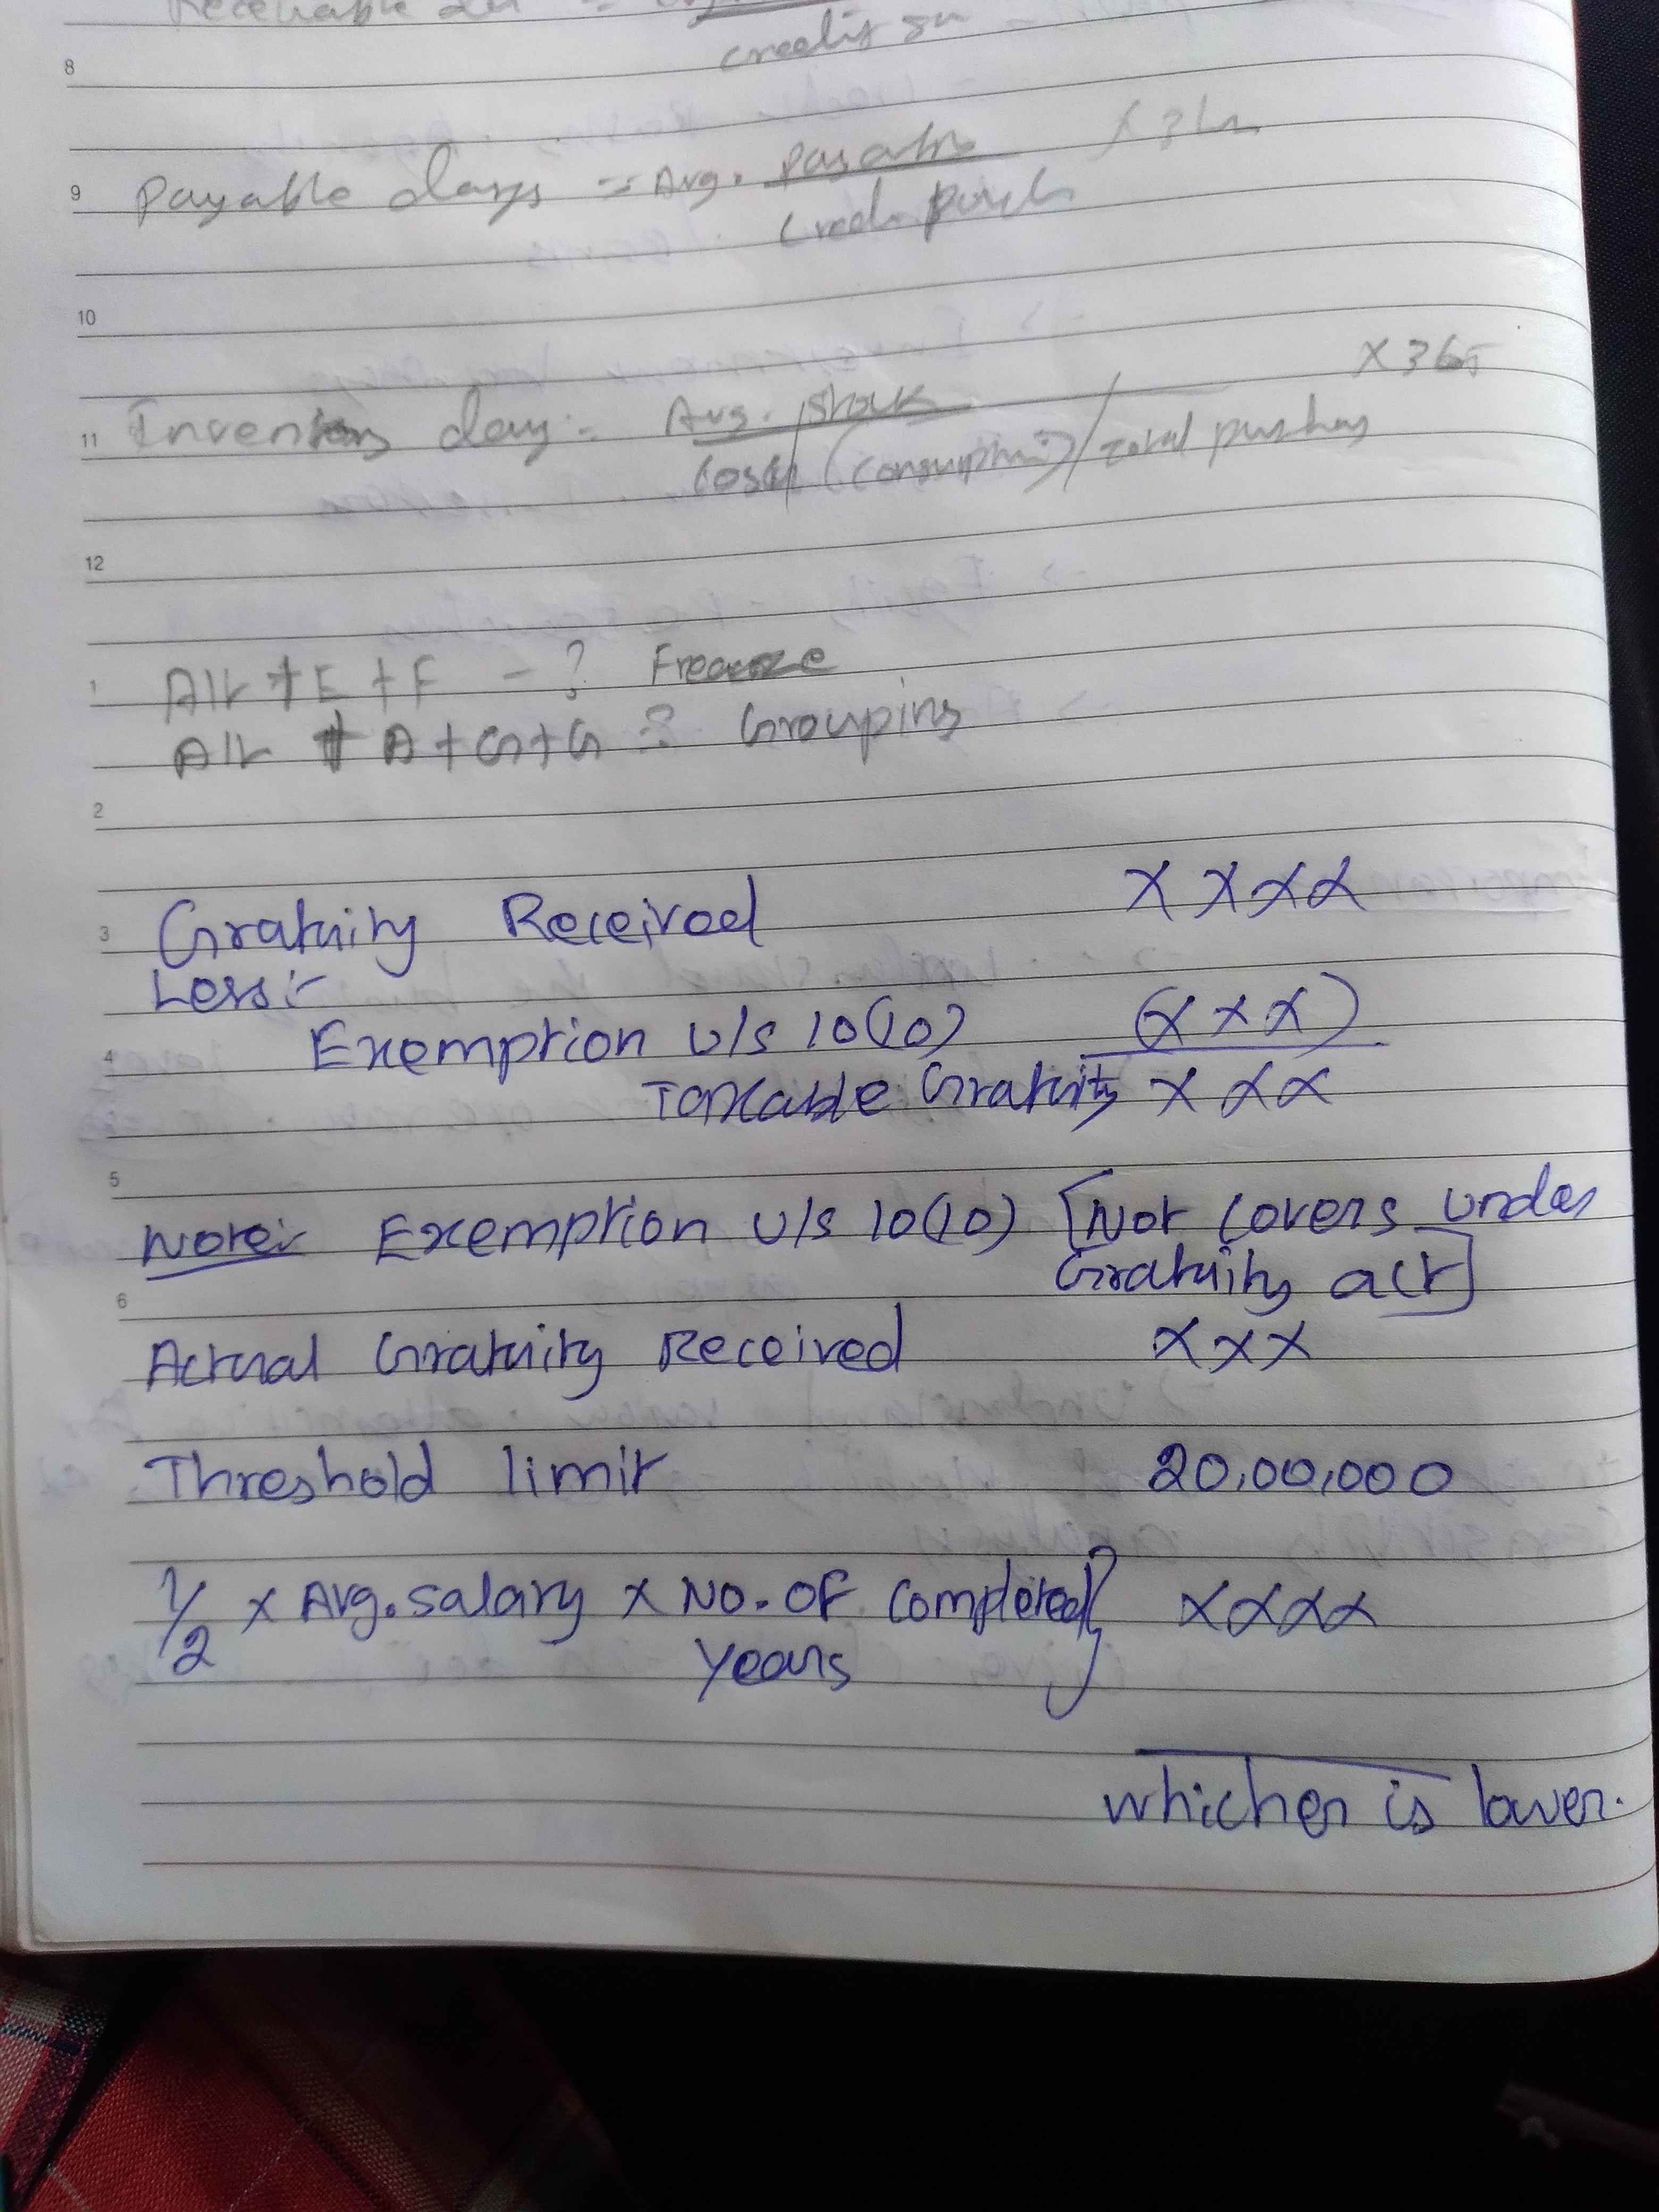 Receivable
8
credit
9 Payable days = Avg. Payable X 365
Cred. Purch
10
X 365
11 Inventory day = Avg. Stock
(Consumption) / Total purchas
12
1 Alt + E + F - ? Freeze
Alt + A + G + G ? Grouping
2
3 Gratuity Received XXXX
Less:-
4 Exemption u/s 10(10) (XXX)
Taxable Gratuity XXX
5
Note:- Exemption u/s 10(10) [Not covers under
6 Gratuity act]
Actual Gratuity Received XXX
Threshold limit 20,00,000
1/2 x Avg. salary x No. of completed} XXXX
years
whicher is lower.